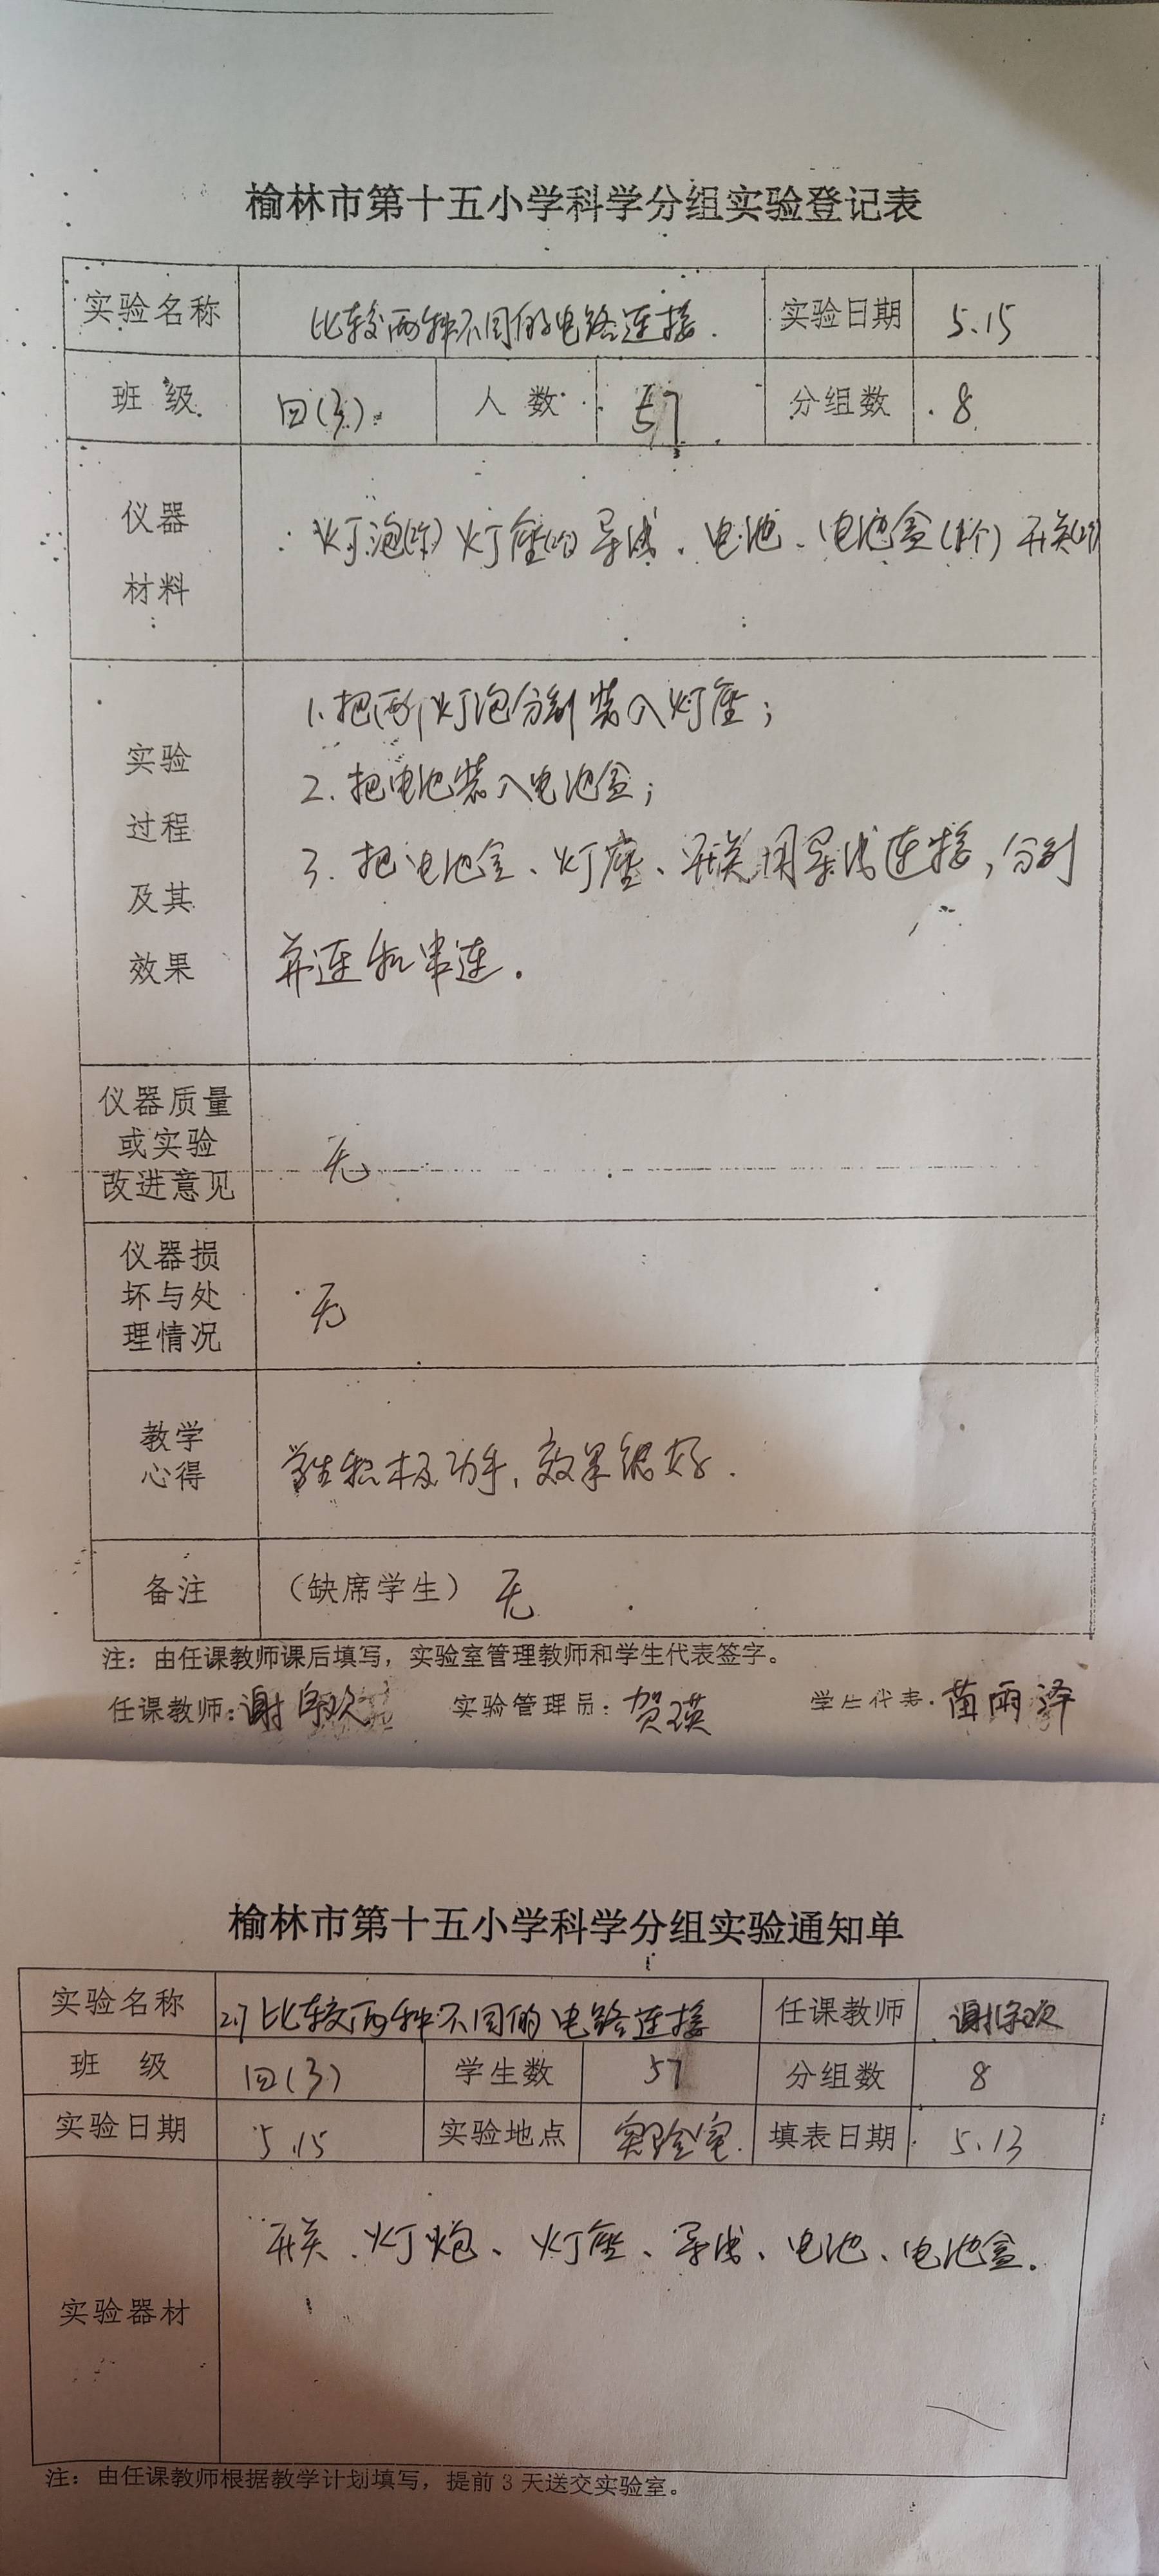 榆林市第十五小学科学分组实验登记表
实验名称 比较两种不同的电路连接. 实验日期 5.15
班级 四(3) 人数 57 分组数 8
仪器
材料
灯泡 灯座 导线、电池、电池盒 开关
实验
过程
及其
效果
1.把两个灯泡分别装入灯座;
2.把电池装入电池盒;
3.把电池盒、灯座、开关用导线连接,分别
并连和串连.
仪器质量
或实验
改进意见
无
仪器损
坏与处
理情况
无
教学
心得
学生积极动手,效果很好.
备注 (缺席学生) 无
注:由任课教师课后填写,实验室管理教师和学生代表签字。
任课教师:谢 欢 实验管理员:贺瑛 学生代表:苗雨泽
榆林市第十五小学科学分组实验通知单
实验名称 27 比较两种不同的电路连接 任课教师 谢 欢
班级 四(3) 学生数 57 分组数 8
实验日期 5.15 实验地点 实验室. 填表日期 5.13
实验器材
开关、灯炮、灯座、导线、电池、电池盒.
注:由任课教师根据教学计划填写,提前3天送交实验室。